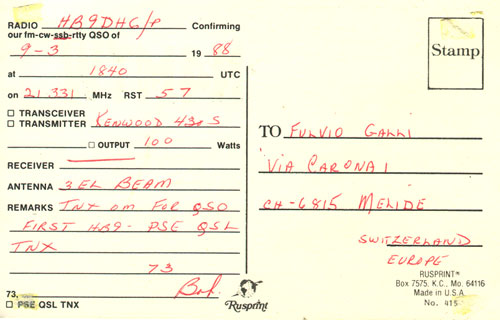 RADIO HB9DHG/P Confirming
our fm-cw-ssb-rtty QSO of
9-3 19 88
at 1840 UTC
on 21.331 MHz RST 57
☐ TRANSCEIVER
☐ TRANSMITTER KENWOOD 430 S
☐ OUTPUT 100 Watts
RECEIVER
ANTENNA 3 EL BEAM
REMARKS TNX OM FOR QSO
FIRST HB9 - PSE QSL
TNX
73
Bob
73,
☐ PSE QSL TNX
Rusprint
Stamp
TO FULVIO GALLI
VIA CARONA 1
CH-6815 MELIDE
SWITZERLAND
EUROPE
RUSPRINT®
Box 7575, K.C., Mo. 64116
Made in U.S.A.
No. 415